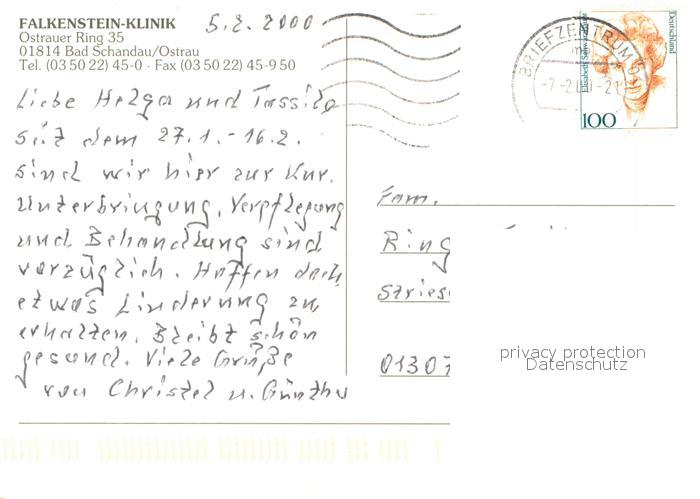 FALKENSTEIN-KLINIK
Ostrauer Ring 35
01814 Bad Schandau/Ostrau
Tel. (03 50 22) 45-0 · Fax (03 50 22) 45-9 50
5.2.2000
Liebe Helga und Tassilo
seit dem 27.1.-16.2.
sind wir hier zur Kur.
Unterbringung, Verpflegung
und Behandlung sind
vorzüglich. Hoffen doch
etwas Linderung zu
erhalten. Bleibt schön
gesund. Viele Grüße
von Christel u. Günther
BRIEFZENTRUM
-7.-2.00-21
Elisabeth Schwarzhaupt
Deutschland
100
Fam.
Ring
Stries
01307
privacy protection
Datenschutz